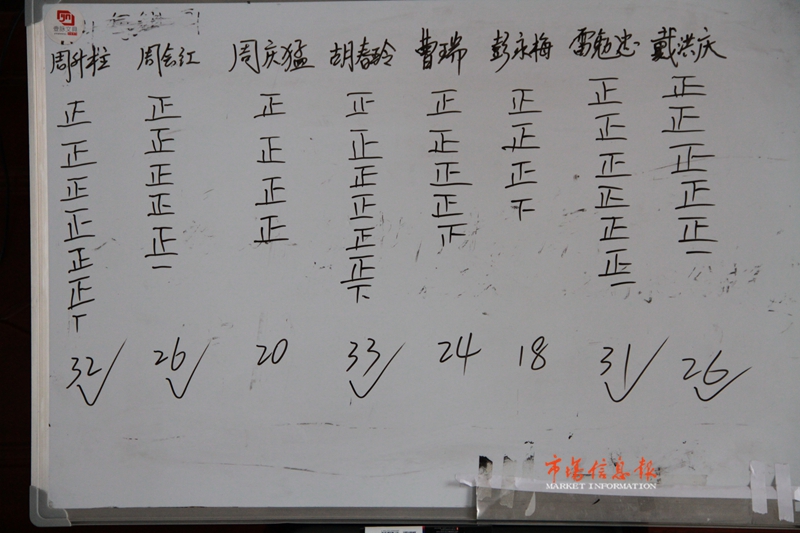 周升柱 周会红 周庆猛 胡春玲 曹瑞 彭永梅 雷勉忠 戴洪庆
正 正 正 正 正 正 正 正
正 正 正 正 正 正 正 正
正 正 正 正 正 正 正 正
正 正 正 正 正 下 正 正
正 正一 正 正 正 正一
正 正 正一
丅 下
32 26 20 33 24 18 31 26
市场信息报
MARKET INFORMATION